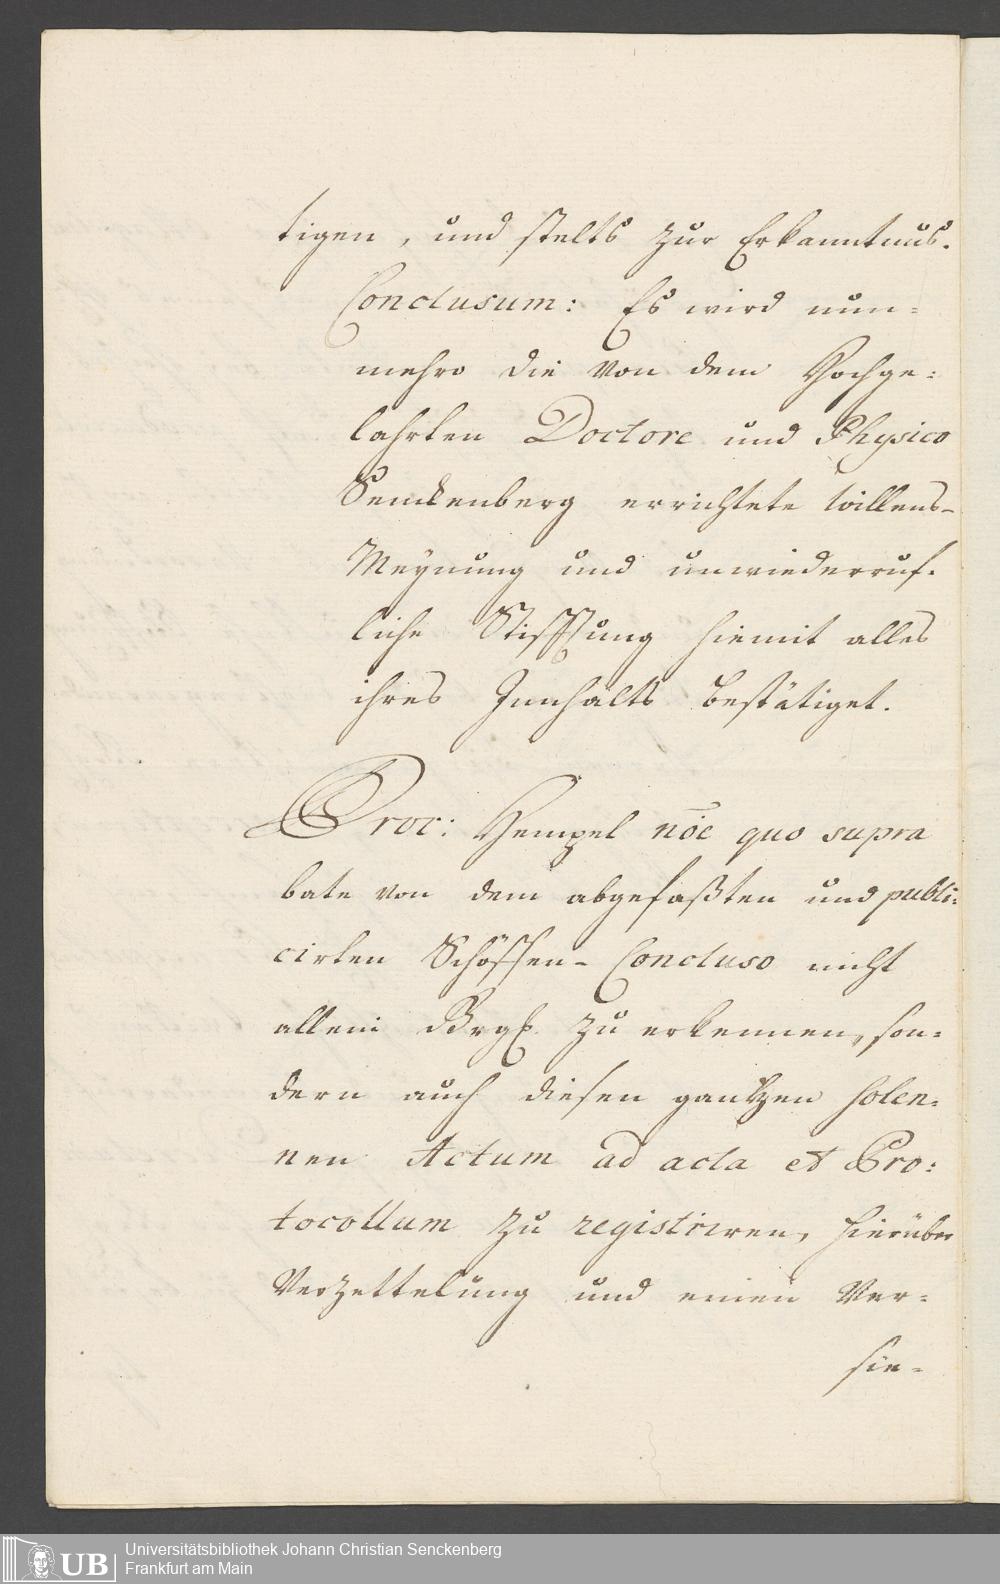 tigen, und stelts zur Erkanntnus.
Conclusum: Es wird nun=
mehro die von dem Hochge=
lahrten Doctore und Physico
Senckenberg errichtete Willens-
Meynung und unwiederruf=
liche Stifftung hiemit alles
ihres Innhalts bestätiget.
Proc: Hempel nōe quo supra
bate von dem abgefaßten und publi=
cirten Schöffen-Concluso nicht
allein zu erkennen, son=
dern auch diesen gantzen solen=
nen Actum ad acta et Pro=
tocollum zu registriren, hierüber
Verzettelung und einen Ver=
sie=
UB Universitätsbibliothek Johann Christian Senckenberg
Frankfurt am Main